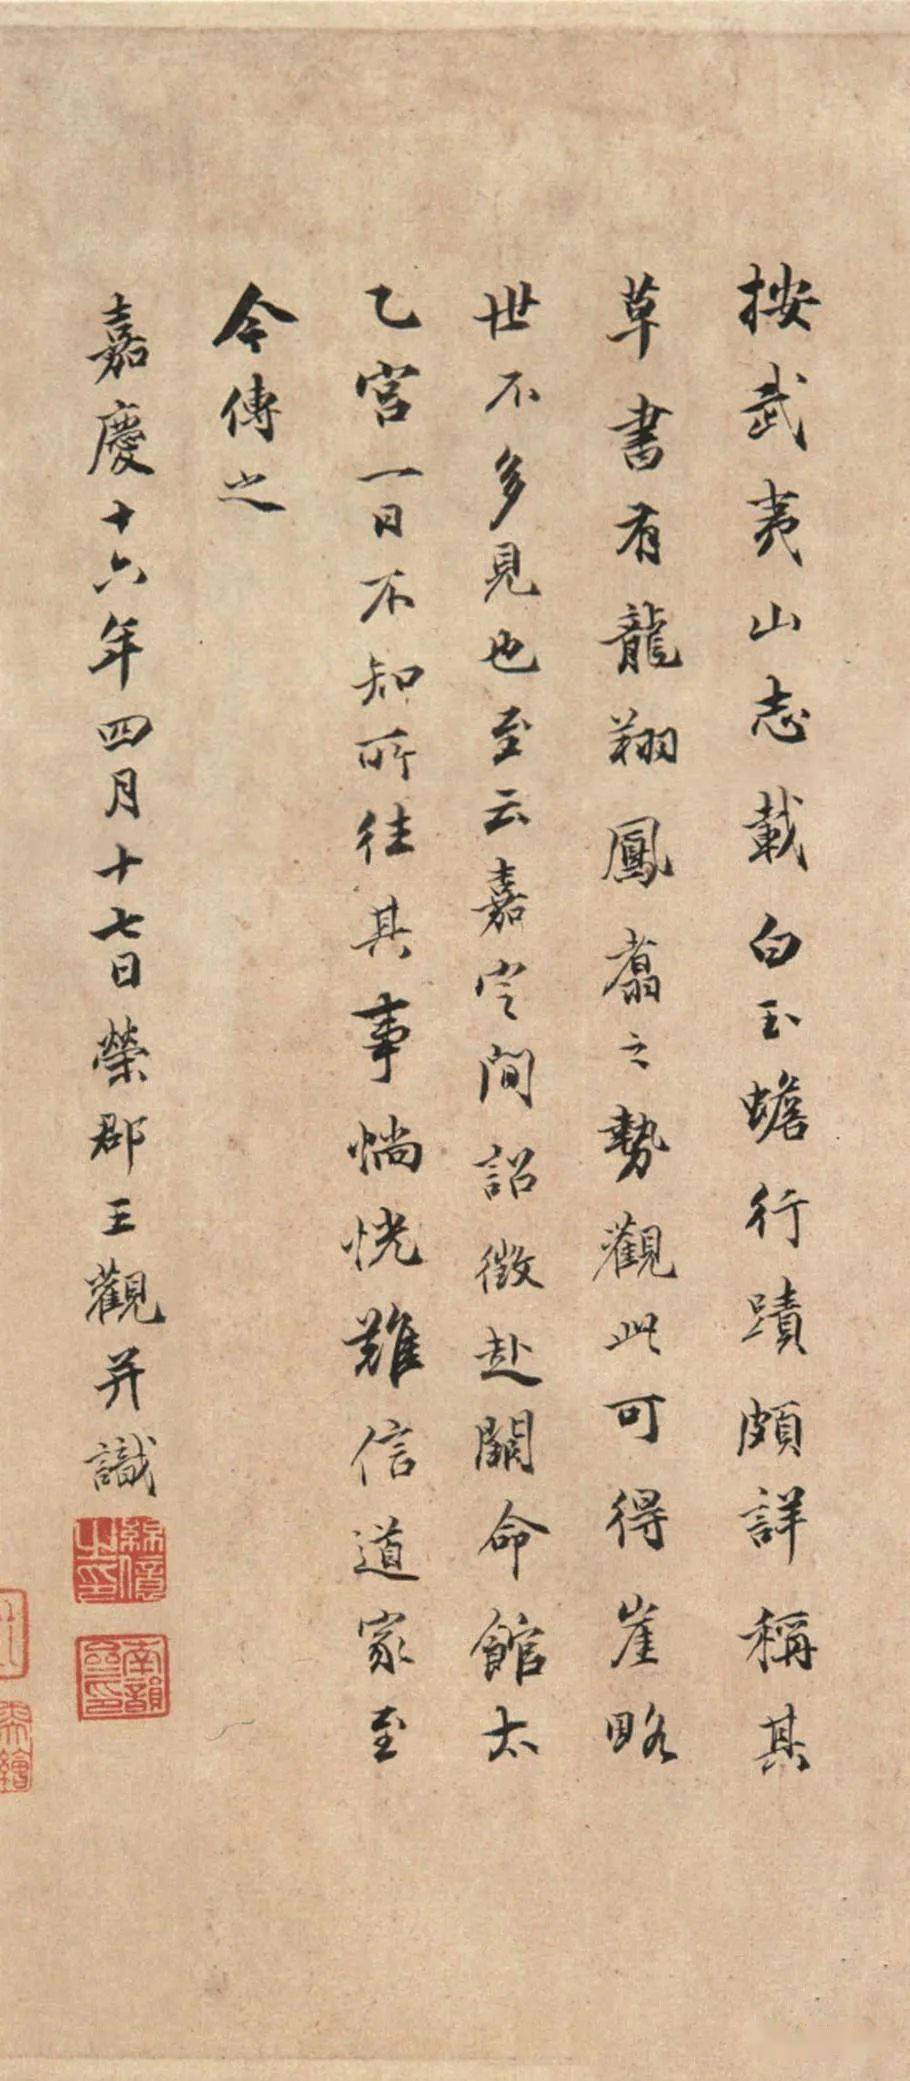 按武夷山志載白玉蟾行蹟頗詳稱其
草書有龍翔鳳翥之勢觀此可得崖略
世不多見也至云嘉定間詔徵赴闕命館太
乙宮一日不知所往其事惝恍難信道家至
今傳之
嘉慶十六年四月十七日榮郡王觀并識
綿億之印
南韻